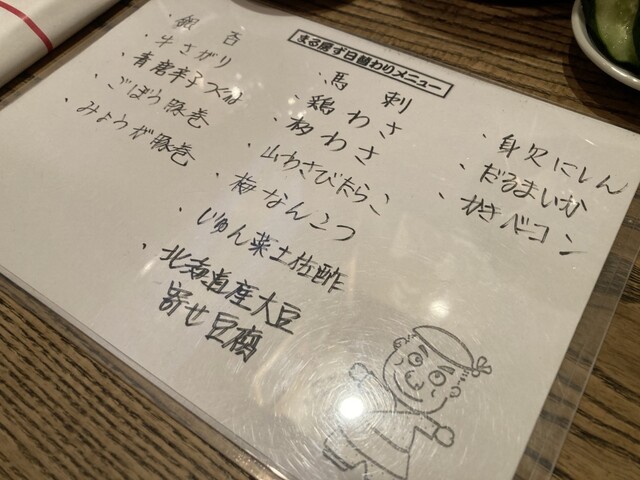 まる居ず日替わりメニュー
・馬刺
・鶏わさ
・柳わさ
・山わさびたらこ
・梅なんこつ
・じゅん菜土佐酢
・北海道産大豆
寄せ豆腐
・身欠にしん
・だるまいか
・かきベーコン
・銀杏
・牛さがり
・青唐辛子つくね
・ごぼう豚巻
・みょうが豚巻